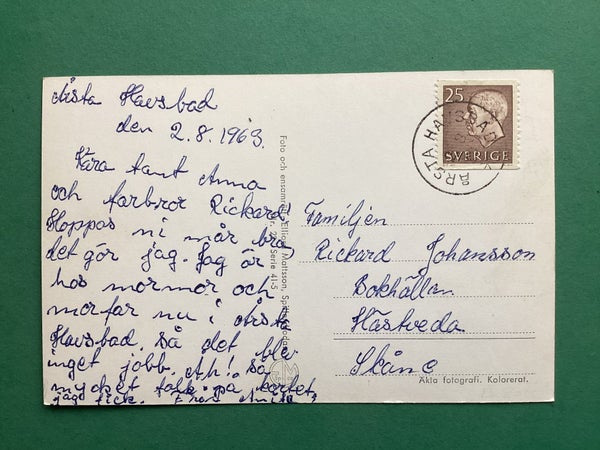 Årsta Havsbad
den 2.8.1963.
Kära tant Anna
och farbror Rickard
Hoppas ni mår bra
det gör jag. Jag är
hos mormor och
morfar nu i Årsta
Havsbad. så det blev
inget jobb. Ah! så
mycket folk på kortet,
jag fick.
Foto och ensamrätt: Mattsson,
Serie 41-5
25
SVERIGE
ÅRSTA HAVSBAD
Familjen
Rickard Johansson
Bokhållan
Hästveda
Skåne
Äkta fotografi. Kolorerat.